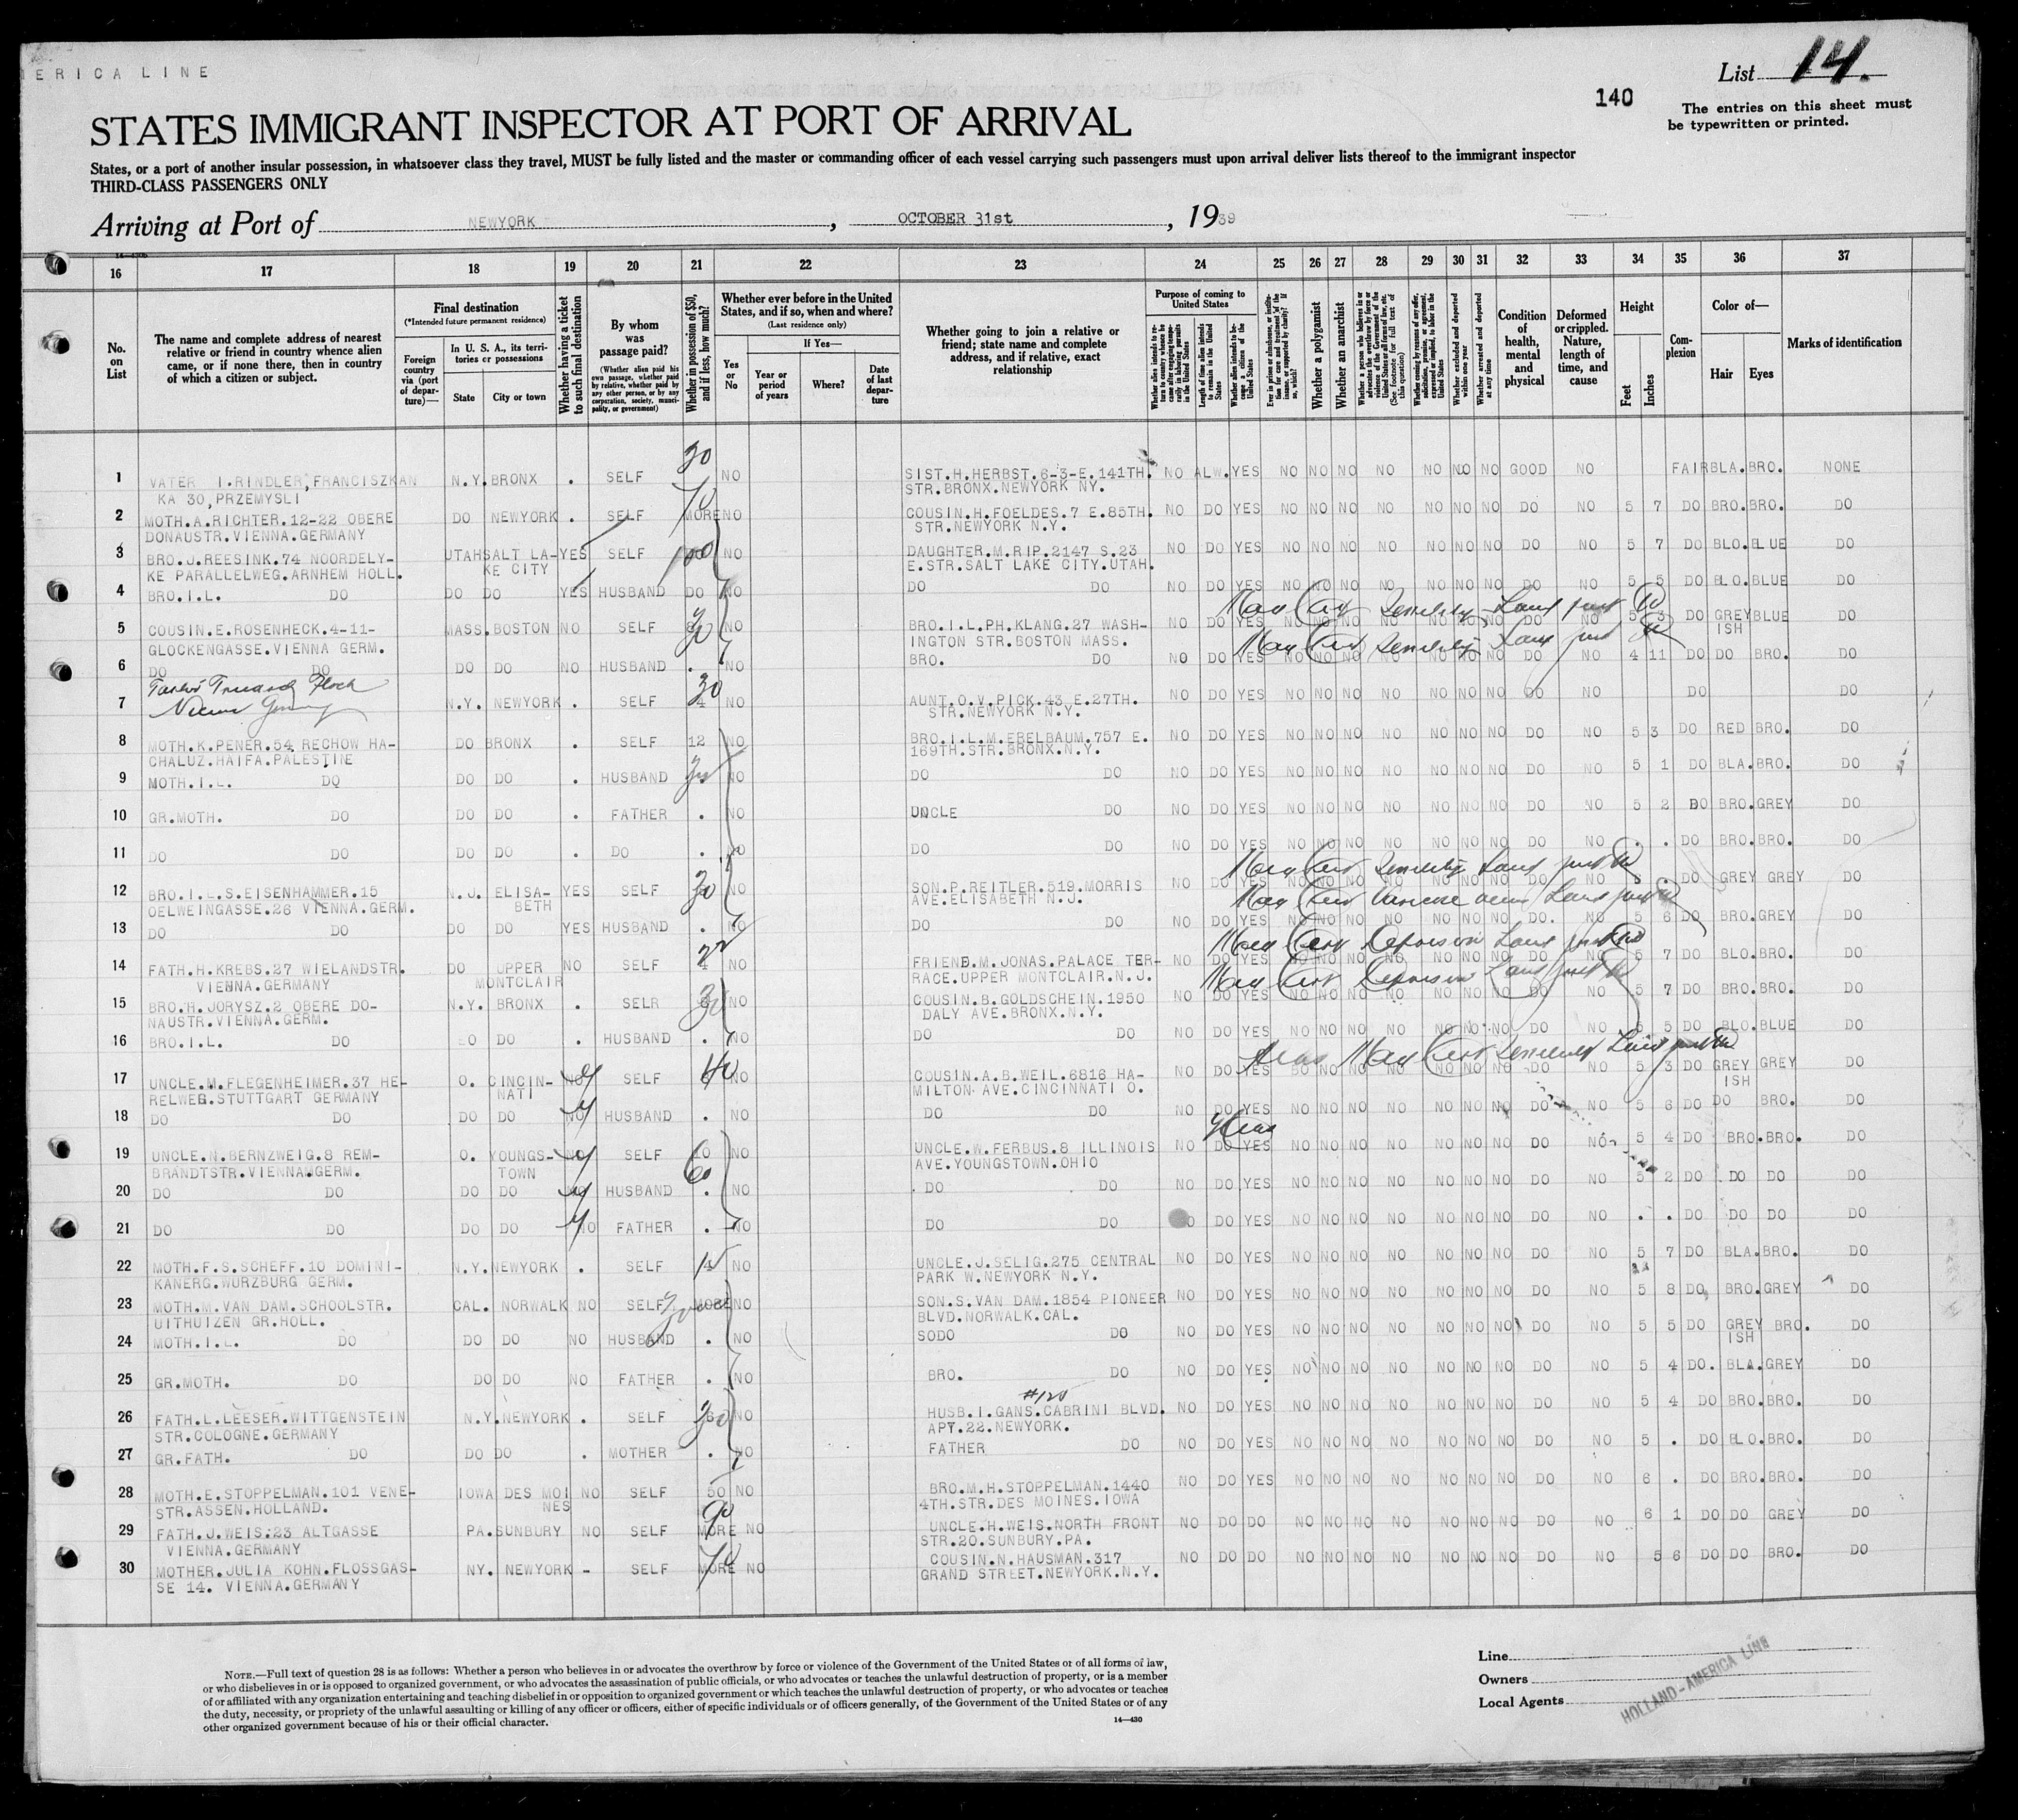 ERICA LINE
List 14.
140
The entries on this sheet must
be typewritten or printed.
STATES IMMIGRANT INSPECTOR AT PORT OF ARRIVAL
States, or a port of another insular possession, in whatsoever class they travel, MUST be fully listed and the master or commanding officer of each vessel carrying such passengers must upon arrival deliver lists thereof to the immigrant inspector
THIRD-CLASS PASSENGERS ONLY
Arriving at Port of NEWYORK, OCTOBER 31st, 1939
16 17 18 19 20 21 22 23 24 25 26 27 28 29 30 31 32 33 34 35 36 37
No. on List
The name and complete address of nearest relative or friend in country whence alien came, or if none there, then in country of which a citizen or subject.
Final destination
(*Intended future permanent residence)
Foreign country via (port of departure)—
In U. S. A., its territories or possessions
State
City or town
Whether having a ticket to such final destination
By whom was passage paid?
(Whether alien paid his own passage, whether paid by relative, whether paid by any other person, or by any corporation, society, municipality, or government)
Whether in possession of $50, and if less, how much?
Whether ever before in the United States, and if so, when and where?
(Last residence only)
Yes or No
If Yes—
Year or period of years
Where?
Date of last departure
Whether going to join a relative or friend; state name and complete address, and if relative, exact relationship
Purpose of coming to United States
Length of time alien intends to remain in the United States
Whether alien intends to become a citizen of the United States
Whether a polygamist
Whether an anarchist
Whether excluded and deported within one year
Whether arrested and deported at any time
Condition of health, mental and physical
Deformed or crippled. Nature, length of time, and cause
Height
Feet
Inches
Complexion
Color of—
Hair
Eyes
Marks of identification
1 VATER I.RINDLER,FRANCISZKAN N.Y. BRONX . SELF 30 NO SIST.H.HERBST.6-3-E.141TH. NO ALW. YES NO NO NO NO NO NO NO GOOD NO FAIR BLA. BRO. NONE
KA 30,PRZEMYSLI STR.BRONX.NEWYORK NY.
2 MOTH.A.RICHTER.12-22 OBERE DO NEWYORK . SELF MORE 70 NO COUSIN.H.FOELDES.7 E.85TH. NO DO YES NO NO NO NO NO NO NO DO NO 5 7 DO BRO. BRO. DO
DONAUSTR.VIENNA.GERMANY STR.NEWYORK N.Y.
3 BRO.J.REESINK.74 NOORDELY- UTAH SALT LA- YES SELF 100 NO DAUGHTER.M.RIP.2147 S.23 NO DO YES NO NO NO NO NO NO NO DO NO 5 7 DO BLO. BLUE DO
KE PARALLELWEG.ARNHEM HOLL. KE CITY E.STR.SALT LAKE CITY.UTAH.
4 BRO.I.L. DO DO DO YES HUSBAND DO NO DO DO NO DO YES NO NO NO NO NO NO NO DO NO 5 5 DO BLO. BLUE DO
5 COUSIN.E.ROSENHECK.4-11- MASS. BOSTON NO SELF NO BRO.I.L.PH.KLANG.27 WASH- NO DO YES NO NO NO NO NO NO NO DO NO 5 3 DO GREY BLUE DO
GLOCKENGASSE.VIENNA GERM. INGTON STR.BOSTON MASS. ISH
6 DO DO DO DO NO HUSBAND . NO BRO. DO NO DO YES NO NO NO NO NO NO NO DO NO 4 11 DO DO BRO. DO
7 N.Y. NEWYORK . SELF 30 NO AUNT.O.V.PICK.43 E.27TH. NO DO YES NO NO NO NO NO NO NO DO NO DO DO
STR.NEWYORK N.Y.
8 MOTH.K.PENER.54 RECHOW HA- DO BRONX . SELF 12 NO BRO.I.L.M.ERELBAUM.757 E. NO DO YES NO NO NO NO NO NO NO DO NO 5 3 DO RED BRO. DO
CHALUZ.HAIFA.PALESTINE 169TH.STR.BRONX.N.Y.
9 MOTH.I.L. DO DO DO . HUSBAND NO DO DO NO DO YES NO NO NO NO NO NO NO DO NO 5 1 DO BLA. BRO. DO
10 GR.MOTH. DO DO DO . FATHER . NO UNCLE DO NO DO YES NO NO NO NO NO NO NO DO NO 5 2 DO BRO. GREY DO
11 DO DO DO DO . DO . NO DO DO NO DO YES NO NO NO NO NO NO NO DO NO . . DO BRO. BRO. DO
12 BRO.I.L.S.EISENHAMMER.15 N.J. ELISA- YES SELF 30 NO SON.P.REITLER.519.MORRIS NO DO YES NO NO NO NO NO NO NO DO NO 5 . DO GREY GREY DO
OELWEINGASSE.26 VIENNA.GERM. BETH AVE.ELISABETH N.J.
13 DO DO DO DO YES HUSBAND . NO DO DO NO DO YES NO NO NO NO NO NO NO DO. NO 5 6 DO BRO. GREY DO
14 FATH.H.KREBS.27 WIELANDSTR. DO UPPER NO SELF 4 NO FRIEND.M.JONAS.PALACE TER- NO DO YES NO NO NO NO NO NO NO DO NO 5 7 DO BLO. BRO. DO
VIENNA.GERMANY MONTCLAIR RACE.UPPER MONTCLAIR.N.J.
15 BRO.H.JORYSZ.2 OBERE DO- N.Y. BRONX . SELR NO COUSIN.B.GOLDSCHEIN.1950 NO DO YES NO NO NO NO NO NO NO DO NO 5 7 DO BRO. BRO. DO
NAUSTR.VIENNA.GERM. DALY AVE.BRONX.N.Y.
16 BRO.I.L. DO DO DO . HUSBAND . NO DO DO NO DO YES NO NO NO NO NO NO NO DO NO 5 5 DO BLO. BLUE DO
17 UNCLE.M.FLEGENHEIMER.37 HE- O. CINCIN- NO SELF 40 NO COUSIN.A.B.WEIL.6816 HA- NO DO YES NO NO NO NO NO NO NO DO NO 5 3 DO GREY GREY DO
RELWEG.STUTTGART GERMANY NATI MILTON AVE.CINCINNATI O. ISH
18 DO DO DO DO NO HUSBAND . NO DO DO NO DO YES NO NO NO NO NO NO NO DO NO 5 6 DO DO BRO. DO
19 UNCLE.N.BERNZWEIG.8 REM- O. YOUNGS- NO SELF 60 NO UNCLE.W.FERBUS.8 ILLINOIS NO DO YES NO NO NO NO NO NO NO DO NO 5 4 DO BRO. BRO. DO
BRANDTSTR.VIENNA.GERM. TOWN AVE.YOUNGSTOWN.OHIO
20 DO DO DO DO NO HUSBAND . NO DO DO NO DO YES NO NO NO NO NO NO NO DO NO 5 2 DO DO DO DO
21 DO DO DO DO NO FATHER . NO DO DO NO DO YES NO NO NO NO NO NO NO DO NO . . DO DO DO DO
22 MOTH.F.S.SCHEFF.10 DOMINI- N.Y. NEWYORK . SELF NO UNCLE.J.SELIG.275 CENTRAL NO DO YES NO NO NO NO NO NO NO DO NO 5 7 DO BLA. BRO. DO
KANERG.WURZBURG GERM. PARK W.NEWYORK N.Y.
23 MOTH.M.VAN DAM.SCHOOLSTR. CAL. NORWALK NO SELF MORE NO SON.S.VAN DAM.1854 PIONEER NO DO YES NO NO NO NO NO NO NO DO NO 5 8 DO BRO. GREY DO
UITHUIZEN GR.HOLL. BLVD.NORWALK.CAL.
24 MOTH.I.L. DO DO DO NO HUSBAND . NO SODO DO NO DO YES NO NO NO NO NO NO NO DO NO 5 5 DO GREY BRO. DO
ISH
25 GR.MOTH. DO DO DO NO FATHER . NO BRO. DO NO DO YES NO NO NO NO NO NO NO DO NO 5 4 DO. BLA. GREY DO
#120
26 FATH.L.LEESER.WITTGENSTEIN N.Y. NEWYORK . SELF 30 NO HUSB.I.GANS.CABRINI BLVD. NO DO YES NO NO NO NO NO NO NO DO NO 5 4 DO BRO. BRO. DO
STR.COLOGNE.GERMANY APT.22.NEWYORK.
27 GR.FATH. DO DO DO . MOTHER . NO FATHER DO NO DO YES NO NO NO NO NO NO NO DO NO 5 . DO BLO. BRO. DO
28 MOTH.E.STOPPELMAN.101 VENE- IOWA DES MOI NO SELF 50 NO BRO.M.H.STOPPELMAN.1440 NO DO YES NO NO NO NO NO NO NO DO NO 6 . DO BRO. BRO. DO
STR.ASSEN.HOLLAND. NES 4TH.STR.DES MOINES.IOWA
29 FATH.J.WEIS.23 ALTGASSE PA. SUNBURY NO SELF MORE 90 NO UNCLE.H.WEIS.NORTH FRONT NO DO DO NO NO NO NO NO NO NO DO NO 6 1 DO DO GREY DO
VIENNA.GERMANY STR.20.SUNBURY.PA.
30 MOTHER.JULIA KOHN.FLOSSGAS- NY. NEWYORK - SELF MORE 70 NO COUSIN.N.HAUSMAN.317 NO DO DO NO NO NO NO NO NO NO DO NO 5 6 DO DO BRO. DO
SE 14. VIENNA.GERMANY GRAND STREET.NEWYORK.N.Y.
NOTE.—Full text of question 28 is as follows: Whether a person who believes in or advocates the overthrow by force or violence of the Government of the United States or of all forms of law,
or who disbelieves in or is opposed to organized government, or who advocates the assassination of public officials, or who advocates or teaches the unlawful destruction of property, or is a member
of or affiliated with any organization entertaining and teaching disbelief in or opposition to organized government or which teaches the unlawful destruction of property, or who advocates or teaches
the duty, necessity, or propriety of the unlawful assaulting or killing of any officer or officers, either of specific individuals or of officers generally, of the Government of the United States or of any
other organized government because of his or their official character.
14—430
Line
Owners
Local Agents
HOLLAND-AMERICA LINE